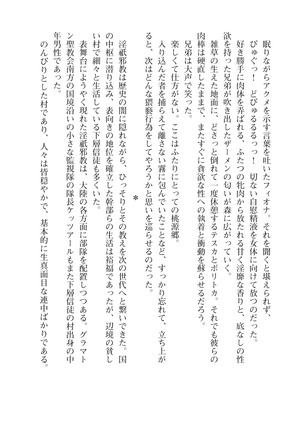 眠りながらアクメを示す言葉を吐いたフィオナ。それを聞くと堪えられず、
びゅぐっ！　どびゅるるるっっ！　切ない自慰精液を女体に向けて放つのだった。
好き勝手に肉体を弄ばれる、ふたつの牝尻から放たれる甘く淫靡な香りと、底なしの性
欲を持った兄弟が吹き出したザーメンの匂いが森に広がっていく。
雑草の生えた地面に、どさっと倒れて一度休憩するテスカとポリトカ。それでも彼らの
肉棒は硬直したままで、またすぐに貪欲な性への執着と衝動を蘇らせるだろう。
兄弟は大声で笑った。
楽しくて仕方がない。ここはふたりにとっての桃源郷。
入り込んだ者を捕らえて離さない霧に包んでいたことなど、すっかり忘れて、立ち上が
ると、次はどんな猥褻行為をしてやろうかと思いを巡らせるのだった。
＊
淫祇邪教は歴史の闇に隠れながら、ひっそりとその教えを次の世代へと繋いできた。国
の中枢に潜り込み、表向きの地位を確立した幹部らの生活は裕福であったが、辺境の貧し
い村で細々と生活している下層信徒も多くいた。
表舞台にようやく現れた淫祇邪教は、大陸の各方面に部隊を配置しつつある。グラマト
ン聖教会南方の国境沿いの小さな監視隊の隊長ケッツアールもまた下層信徒の村出身の中
年男性であった。
のんびりとした村であり、人々は皆穏やかで、基本的に生真面目な連中ばかりである。